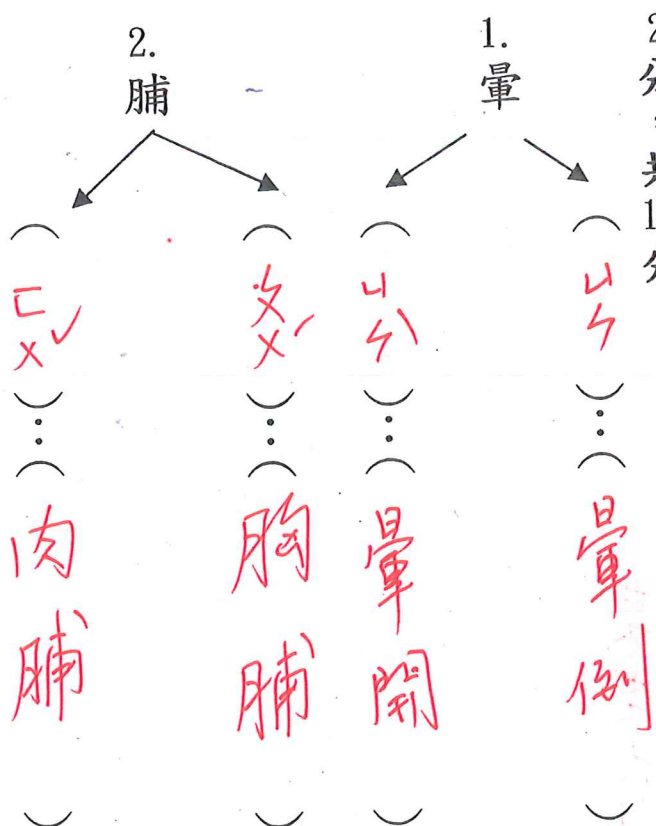 1.暈
(ㄩㄣ):(暈倒)
(ㄩㄣˋ):(暈開)
2.脯
(ㄆㄨˊ):(胸脯)
(ㄈㄨˇ):(肉脯)